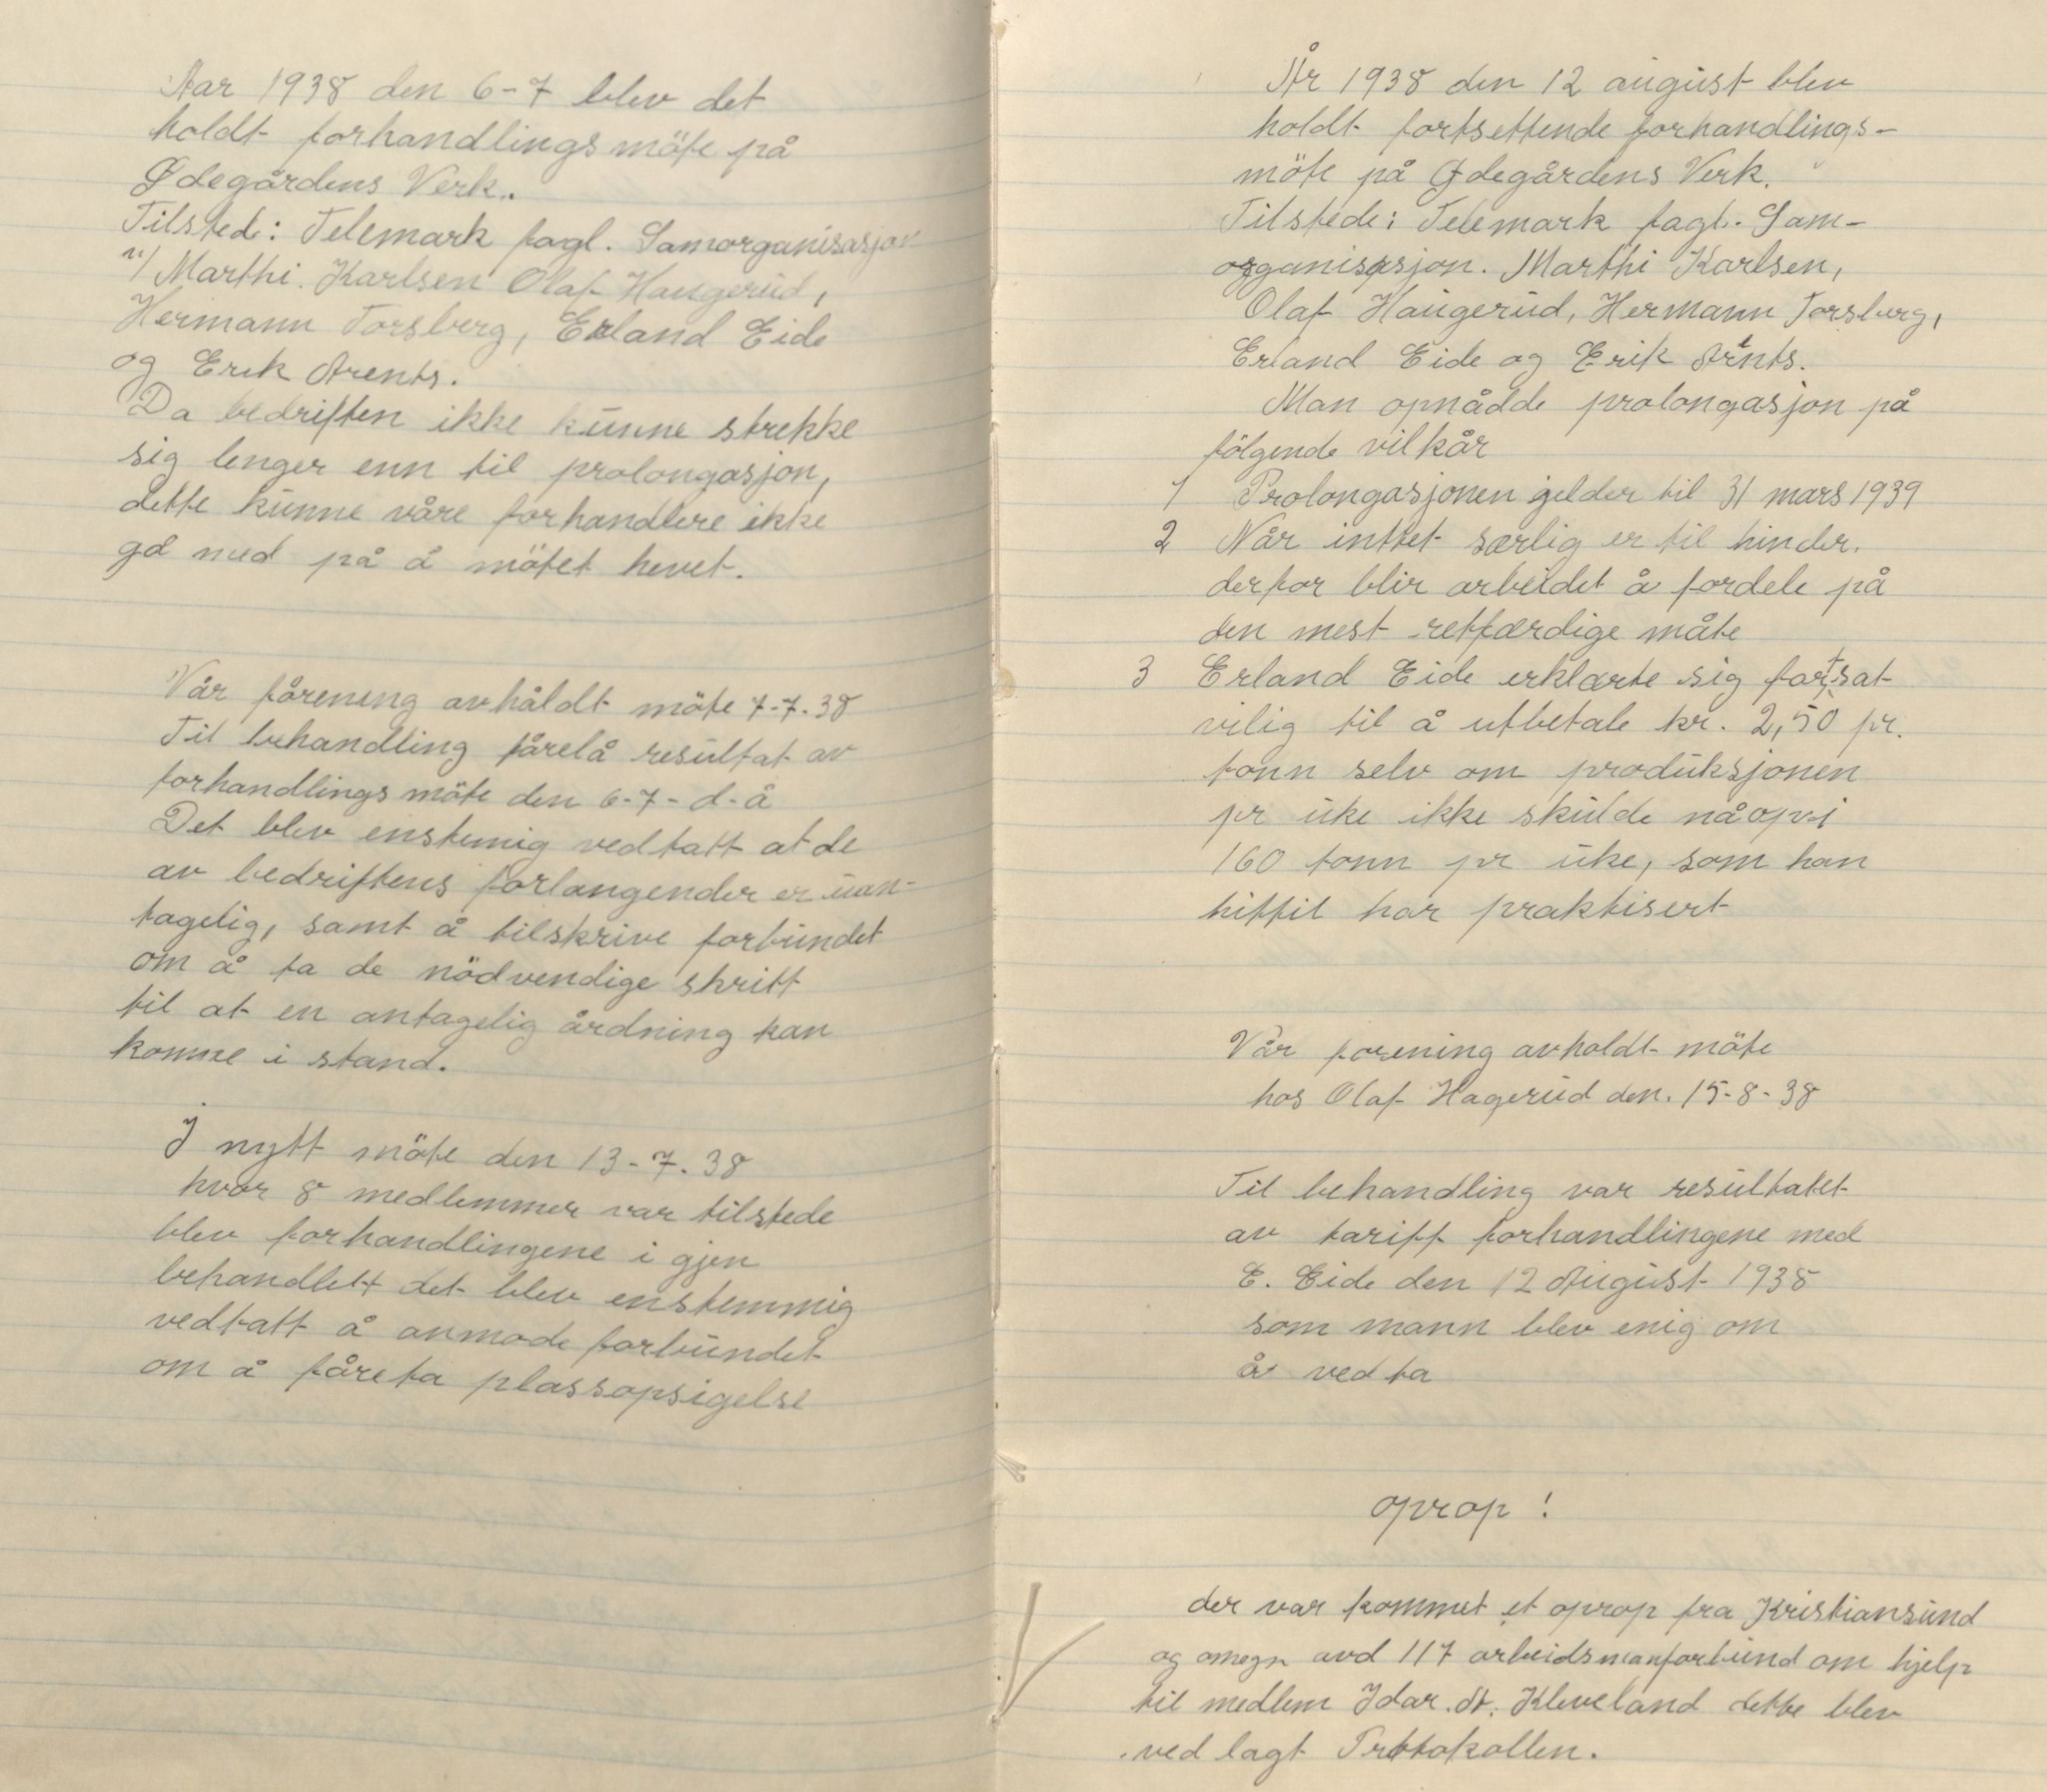 Aar 1938 den 6-7 blev det
holdt forhandlings möte på
Ødegårdens Verk.
Tilstede: Telemark fagl. Samorganisasjon
v/ Marthi. Karlsen Olaf Haugerud,
Hermann Torsberg, Erland Eide
og Erik Arents.
Da bedriften ikke kunne strekke
sig lenger enn til prolongasjon,
dette kunne våre forhandlere ikke
gå med på å mötet hevet.
Vår fårening avhåldt möte 7-7-38
Til behandling fårelå resultat av
forhandlings möte den 6-7-d-å
Det blev enstemig vedtatt at de
av bedriftens forlangender er uan-
tagelig, samt å tilskrive forbundet
om å ta de nödvendige skritt
til at en antagelig årdning kan
komme i stand.
I nytt möte den 13-7.38
hvor 8 medlemmer var tilstede
blev forhandlingene i gjen
behandlett det blev enstemmig
vedtatt å anmode forbundet
om å fåreta plassopsigelse
År 1938 den 12 august blev
holdt fortsettende forhandlings-
möte på Ødegårdens Verk.
Tilstede: Telemark fagl. Sam-
organisasjon. Marthi Karlsen,
Olaf Haugerud, Hermann Torsberg,
Erland Eide og Erik Arents.
Man opnådde prolongasjon på
fölgende vilkår
1 Prolongasjonen gelder til 31 mars 1939
2 Når inttet særlig er til hinder.
derfor blir arbeidet å fordele på
den mest rettfærdige måte
3 Erland Eide erklærte sig fortsat
vilig til å utbetale kr. 2,50 pr.
tonn selv om produksjonen
pr uke ikke skulde nå op i
160 tonn pr uke, som han
hittil har praktisert
Vår forening avholdt möte
hos Olaf Hagerud den. 15-8-38
Til behandling var resultatet
av tariff forhandlingene med
E. Eide den 12 August 1938
som mann blev enig om
å vedta
oprop!
der var kommet et oprop fra Kristiansund
og omegn avd 117 arbeidsmanforbund om hjelp
til medlem Idar. A. Kleveland dette blev
ved lagt Prottokollen.